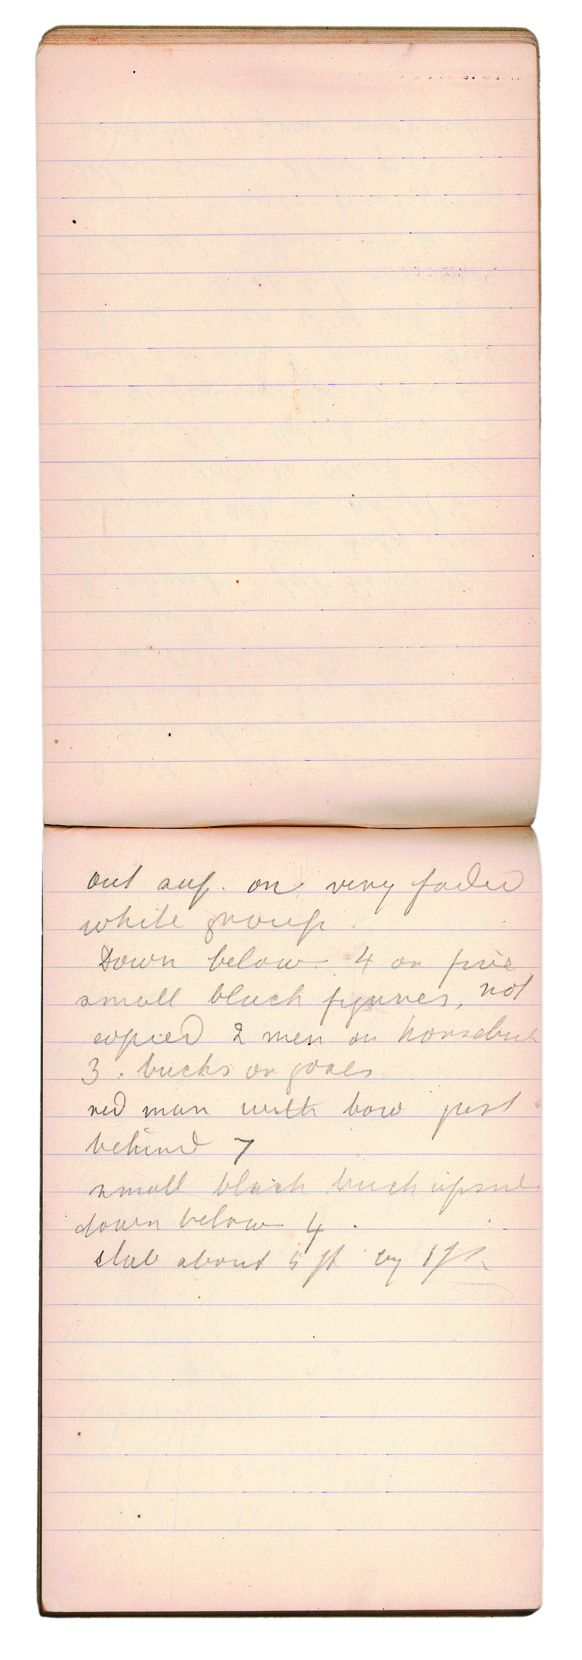 out sup. on very faded
white group.
Down below 4 or five
small black figures, not
copied 2 men on horseback
3. bucks or goats
red man with bow just
behind 7
small black buck upside
down below 4.
slab about 5 ft by 1 ft